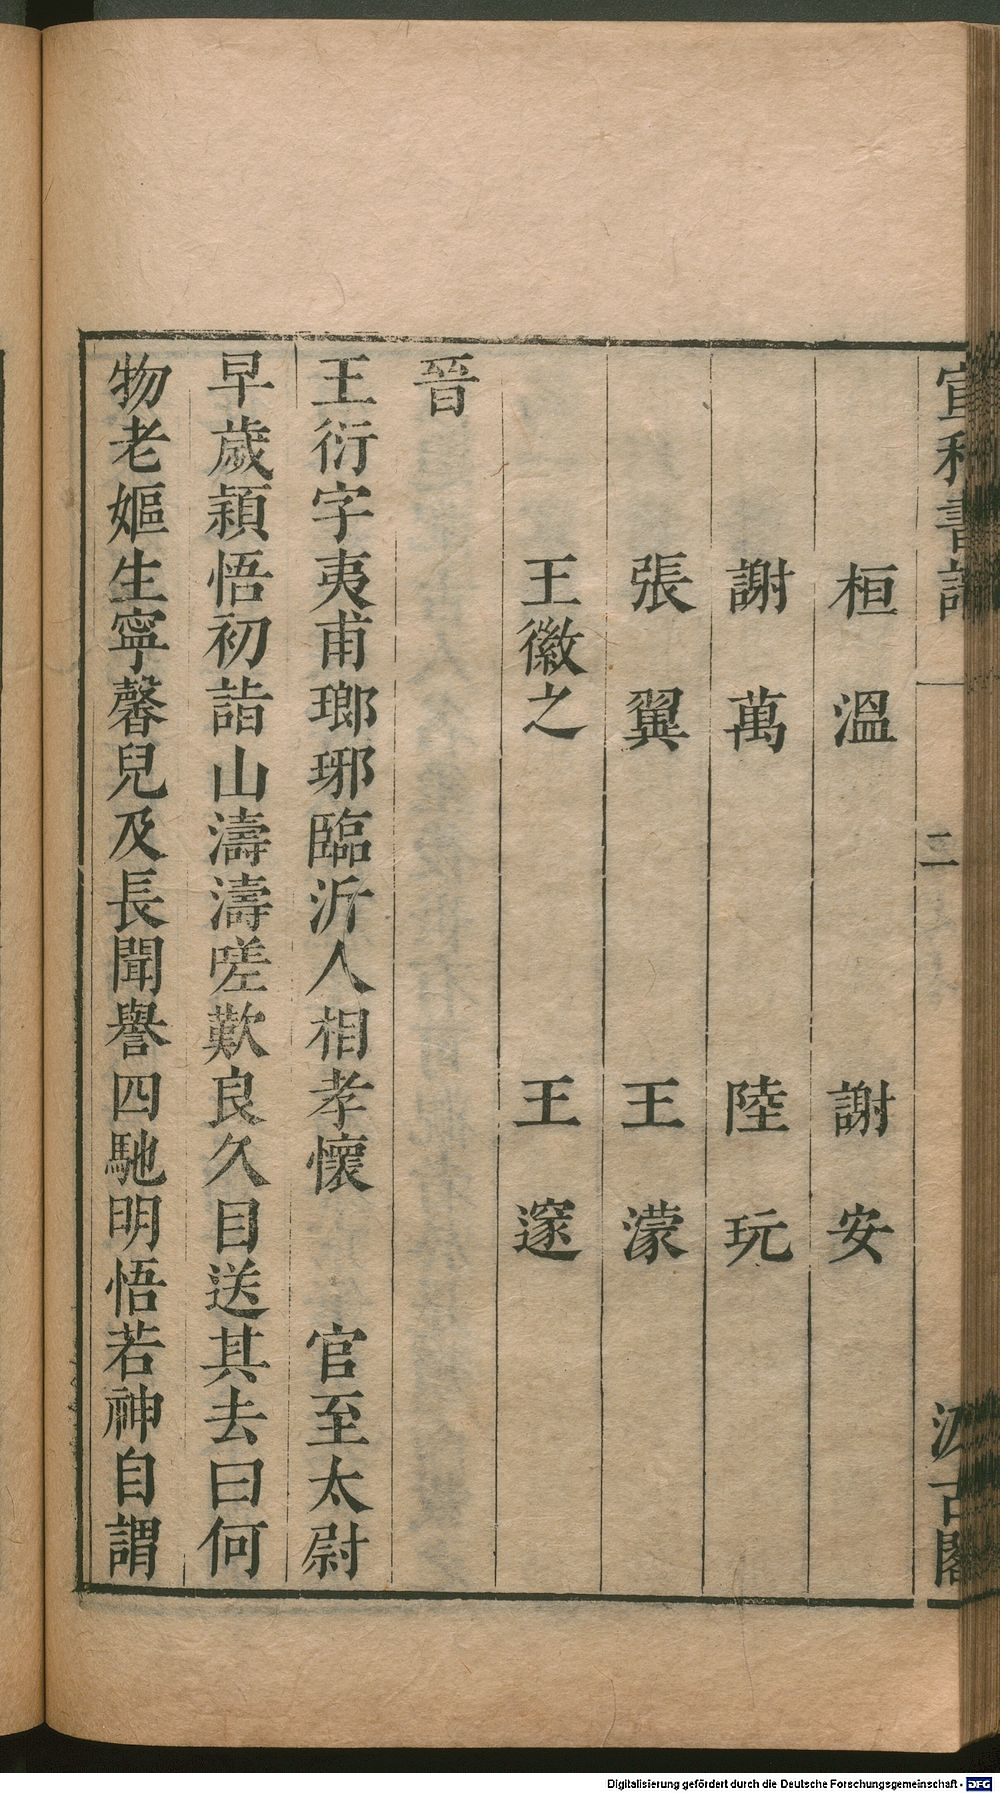 宣和書譜 二 汲古閣
桓溫 謝安
謝萬 陸玩
張翼 王濛
王徽之 王邃
晉
王衍字夷甫瑯琊臨沂人相孝懷 官至太尉
早歲穎悟初詣山濤濤嗟歎良久目送其去曰何
物老嫗生寧馨兒及長聞譽四馳明悟若神自謂
Digitalisierung gefördert durch die Deutsche Forschungsgemeinschaft - DFG